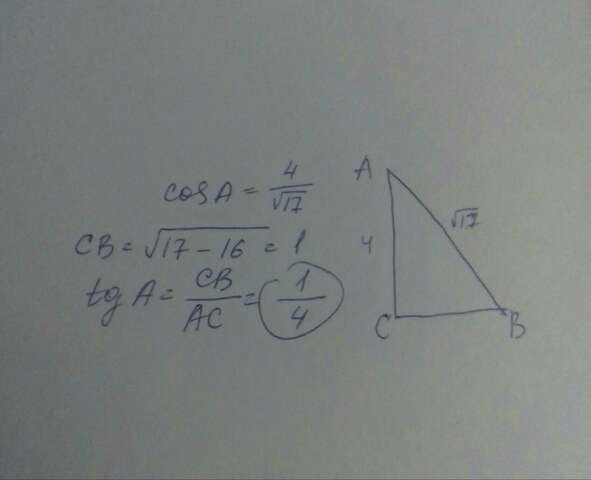 cos A = 4/√17
CB = √17 - 16 = 1
tg A = CB/AC = 1/4
A
√17
4
C
B